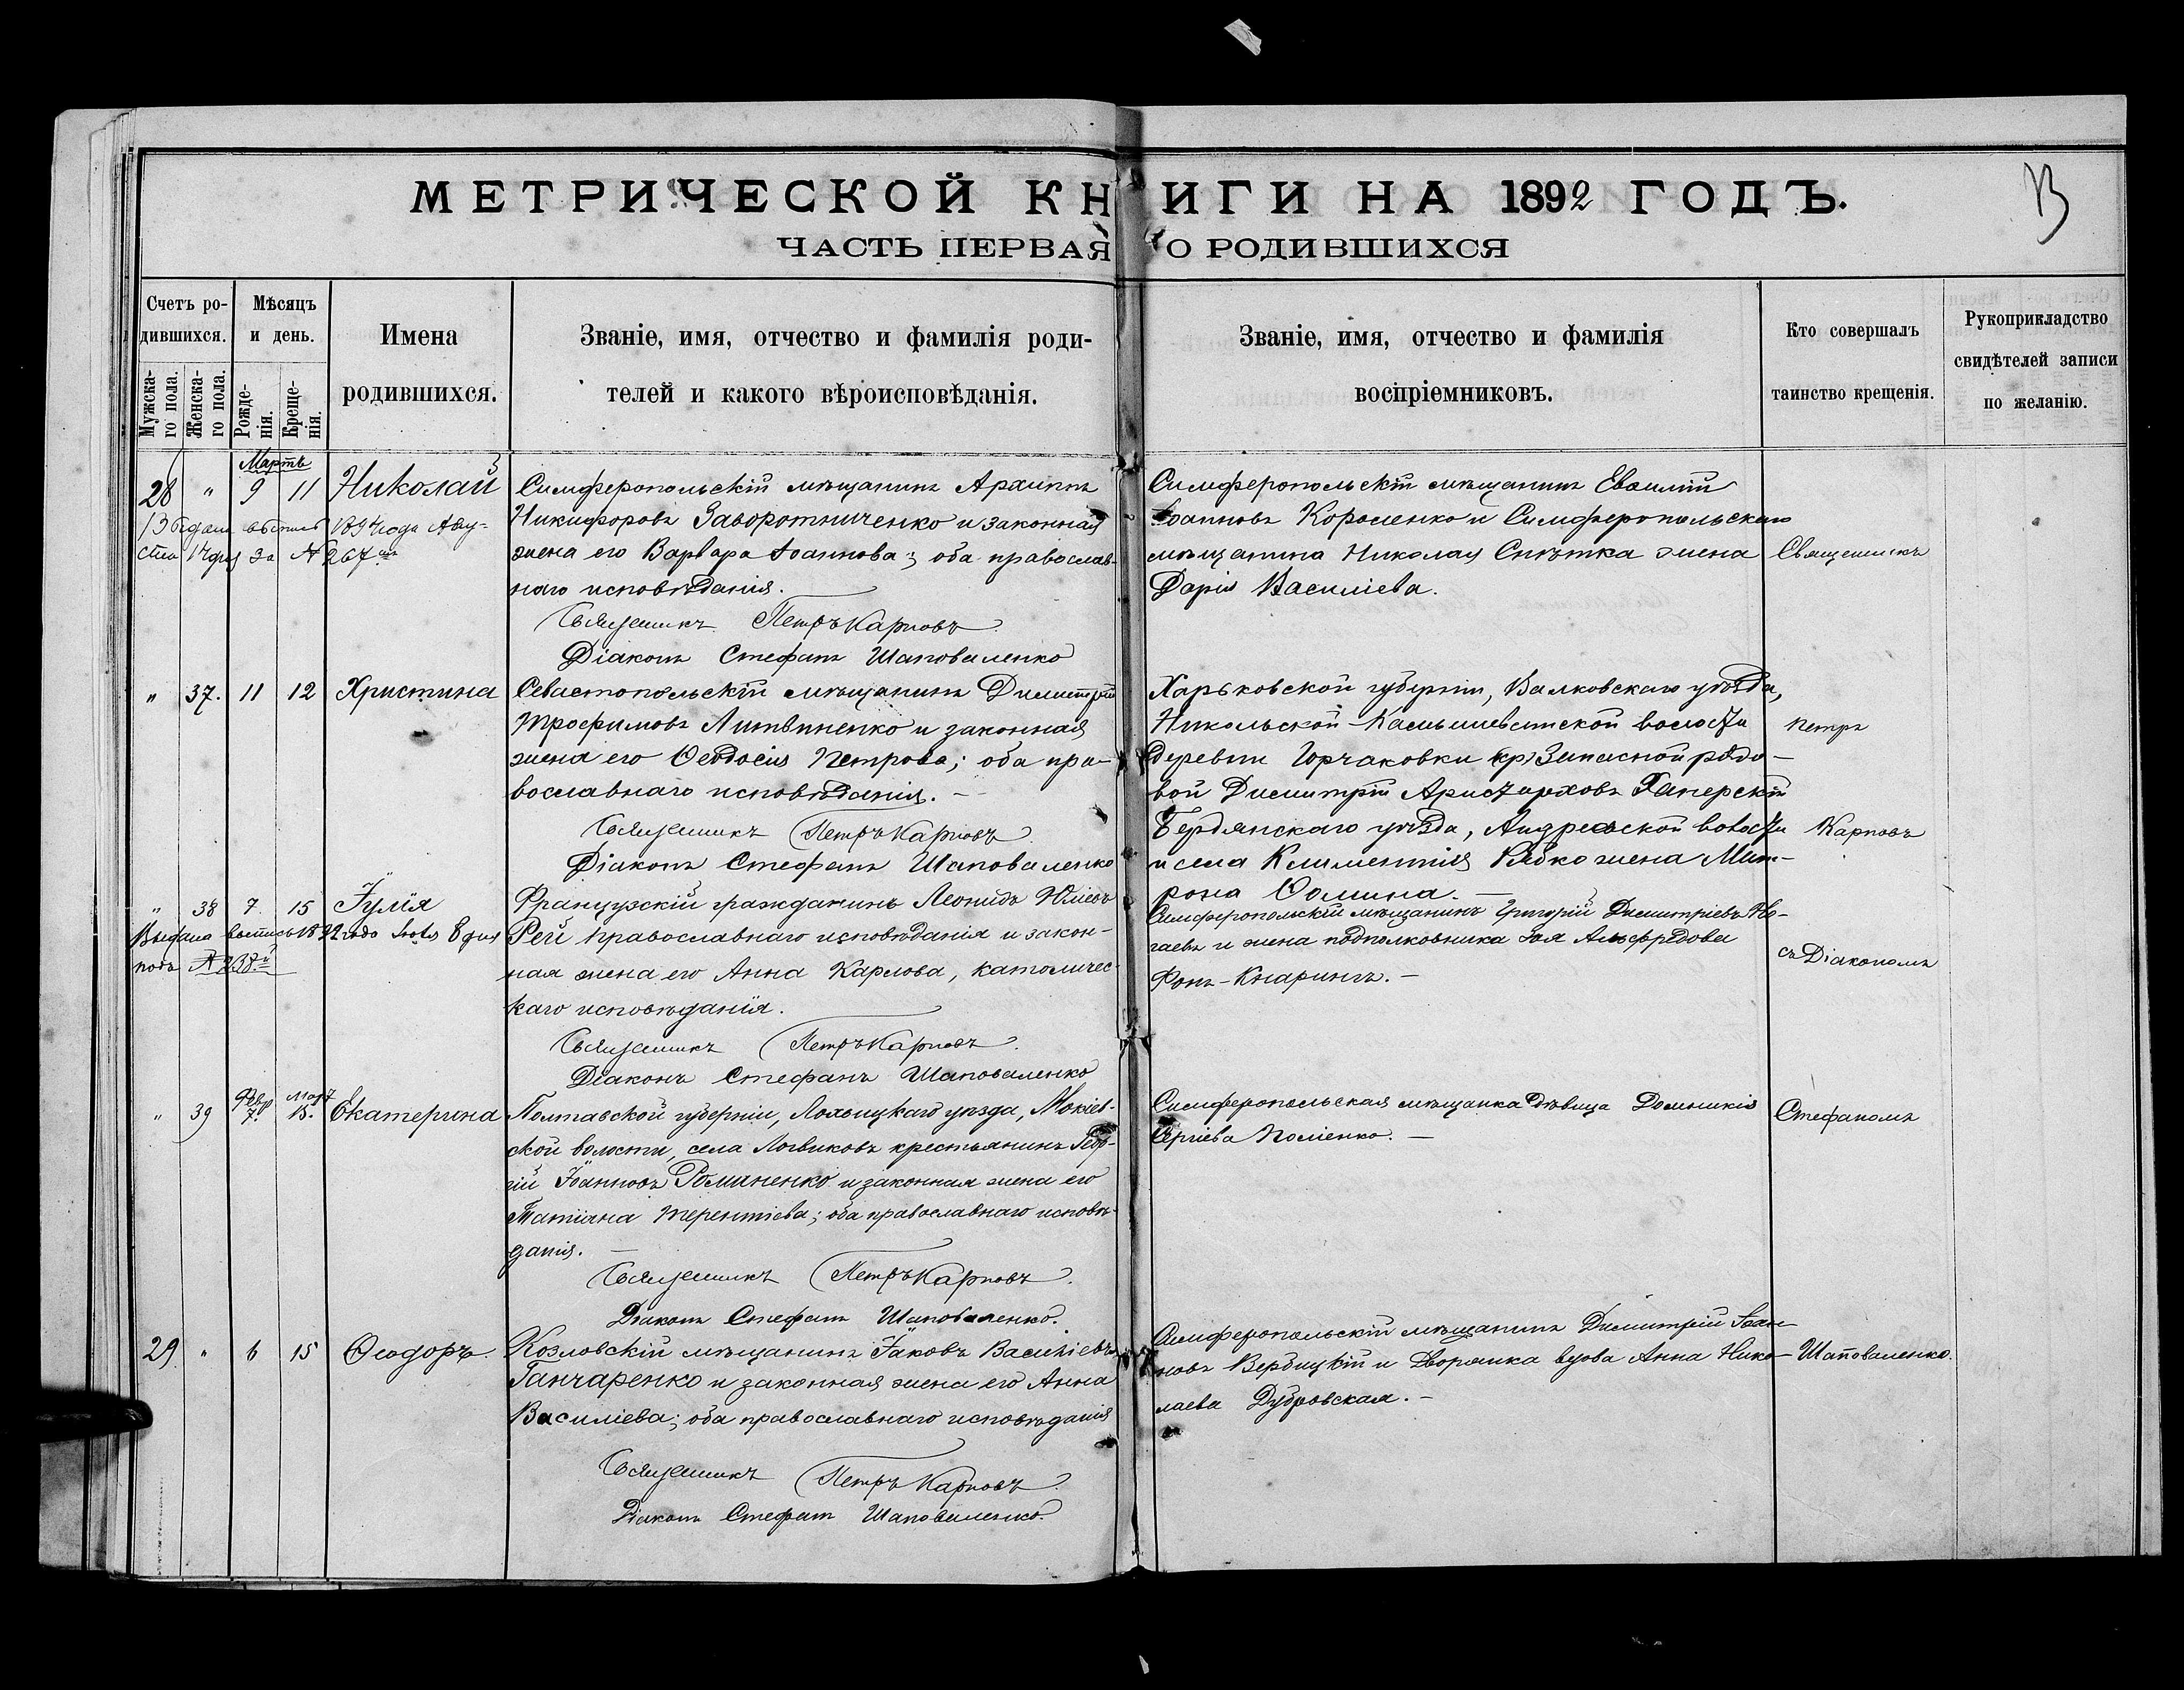 МЕТРИЧЕСКОЙ КНИГИ НА 1892 ГОДЪ.
ЧАСТЬ ПЕРВАЯ О РОДИВШИХСЯ
Счетъ ро-
дившихся.
Мужска-
го пола.
Женска-
го пола.
Мѣсяцъ
и день.
Рожде-
нія.
Креще-
нія.
Имена
родившихся.
Званіе, имя, отчество и фамилія роди-
телей и какого вѣроисповѣданія.
Званіе, имя, отчество и фамилія
воспріемниковъ.
Кто совершалъ
таинство крещенія.
Рукоприкладство
свидѣтелей записи
по желанію.
Мартъ
28 " 9 11 Николай
Выдана выпись 1894 года Авгу-
ста дня за № 267
Симферопольскій мѣщанинъ Архиппъ
Никифоровъ Заворотниченко и законная
жена его Варвара Іоаннова; оба православ-
наго исповѣданія.
Священникъ Петръ Карповъ
Діаконъ Стефанъ Шаповаленко
Симферопольскій мѣщанинъ
Іоанновъ Короленко и Симферопольскаго
мѣщанина Николая жена
Дарія Василіева.
Священникъ
" 37. 11 12 Христина
Севастопольскій мѣщанинъ Димитрій
Трофимовъ Литвиненко и законная
жена его Ѳеодосія Петрова; оба пра-
вославнаго исповѣданія. -
Священникъ Петръ Карповъ
Діаконъ Стефанъ Шаповаленко
Харьковской губерніи, Валковскаго уѣзда,
Никольской- волости
деревни Горчаковки кр. Запасной рядо-
вой Димитрій Аристарховъ
Бердянскаго уѣзда, Андреевской волости
и села Климентія жена Мат-
рона Ѳомина. -
Петръ
Карповъ
" 38 7 15 Іулія
Выдана выпись 1892 года 8 дня
подъ № 238
Французскій гражданинъ Леонидъ Юліевъ
Рей православнаго исповѣданія и закон-
ная жена его Анна Карлова, католичес-
каго исповѣданія.
Священникъ Петръ Карповъ
Діаконъ Стефанъ Шаповаленко
Симферопольскій мѣщанинъ Григорій Димитріевъ Но-
гаевъ и жена подполковника Зоя Альфредова
Фонъ-Кнарингъ. -
съ Діакономъ
Февр. Март
" 39 7. 15. Екатерина
Полтавской губерніи, Лохвицкаго уѣзда,
ской волости, села Логвиковъ крестьянинъ Геор-
гій Іоанновъ Романенко и законная жена его
Татіана Терентіева; оба православнаго исповѣ-
данія. -
Священникъ Петръ Карповъ
Діаконъ Стефанъ Шаповаленко.
Симферопольская мѣщанка дѣвица Домникія
Сергіева -
Стефаномъ
29 " 6 15 Ѳеодоръ
Козловскій мѣщанинъ Іаковъ Василіевъ
Ганчаренко и законная жена его Анна
Василіева; оба православнаго исповѣданія
Священникъ Петръ Карповъ
Діаконъ Стефанъ Шаповаленко.
Симферопольскій мѣщанинъ Димитрій Іоан-
новъ Вербицкій и Дворянка вдова Анна Нико-
лаева Дубровская. -
Шаповаленко.